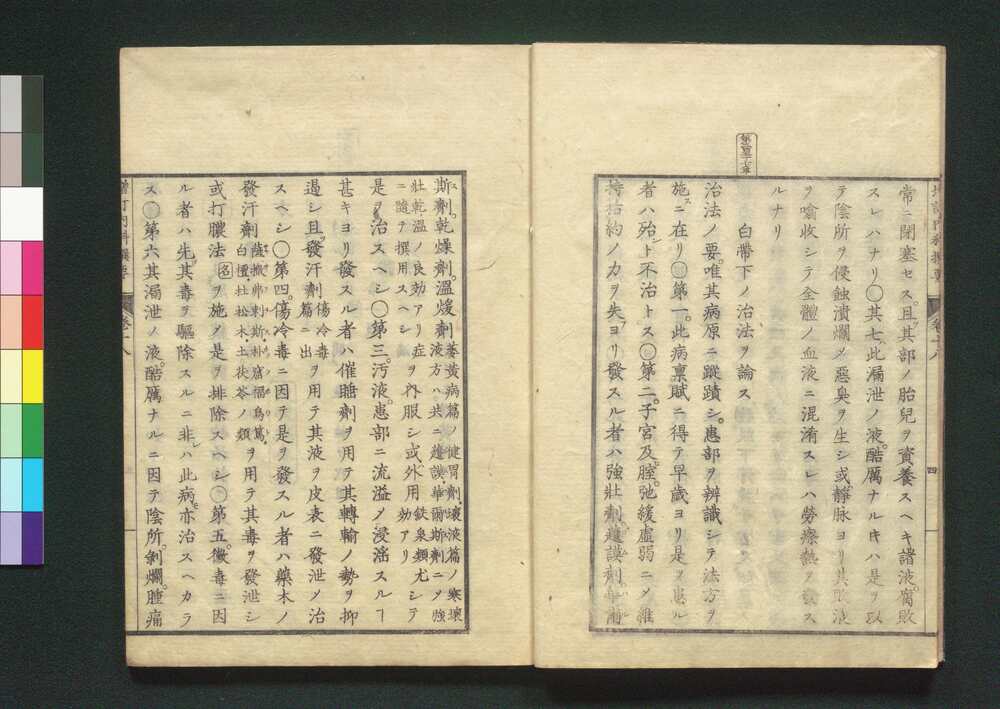 常ニ閉塞セス。且其部ノ胎兒ヲ資養スヘキ諸液腐敗
スレハナリ〇其七此漏泄ノ液。酷厲ナルキハ是ヲ以
テ陰所ヲ侵蝕潰爛メ惡臭ヲ生シ或靜脉ヨリ其敗液
ヲ噏收シテ全體ノ血液ニ混淆スレハ勞瘵熱ヲ發ス
ルナリ
白帶下ノ治法ヲ論ス
治法ノ要。唯其病原ニ蹤蹟シ。患部ヲ辨識シテ法方ヲ
施スニ在リ〇第一。此病稟賦ニ得テ早歳ヨリ是ヲ患ル
者ハ殆ト不治トス〇第二。子宮及腟。弛緩虛弱ニメ維
持括約ノ力ヲ失ヨリ發スル者ハ強壯劑。越謨劑華爾
四
斯劑。乾燥劑。溫煖劑
萎黃病篇ノ健胃劑、壞液篇ノ寒壞
液方ハ共ニ越謨、華爾斯劑ニメ強
壯乾溫ノ良効アリ症ヲ內服シ或外用鉄泉類尤
ニ隨テ撰用スヘシ効アリ
シテ
是ヲ治スヘシ〇第三。汚液。患部ニ流溢メ浸淫スルヿ
甚キヨリ發スル者ハ催睡劑ヲ用テ其轉輸ノ勢ヲ抑
遏シ且發汗劑
傷冷毒
篇ニ出
ヲ用テ其液ヲ皮表ニ發泄メ治
スヘシ〇第四。傷冷毒ニ因テ是ヲ發スル者ハ藥木ノ
發汗劑
薩撒弗剌斯・朴屈福烏篤
白檀杜松木・土茯苓ノ類
ヲ用テ其毒ヲ發泄シ
或打膿法
名
ヲ施メ是ヲ排除スヘシ〇第五。黴毒ニ因
ル者ハ先其毒ヲ驅除スルニ非レハ此病亦治スヘカラ
ス〇第六其漏泄ノ液。酷厲ナルニ因テ陰所。剝爛。腫痛